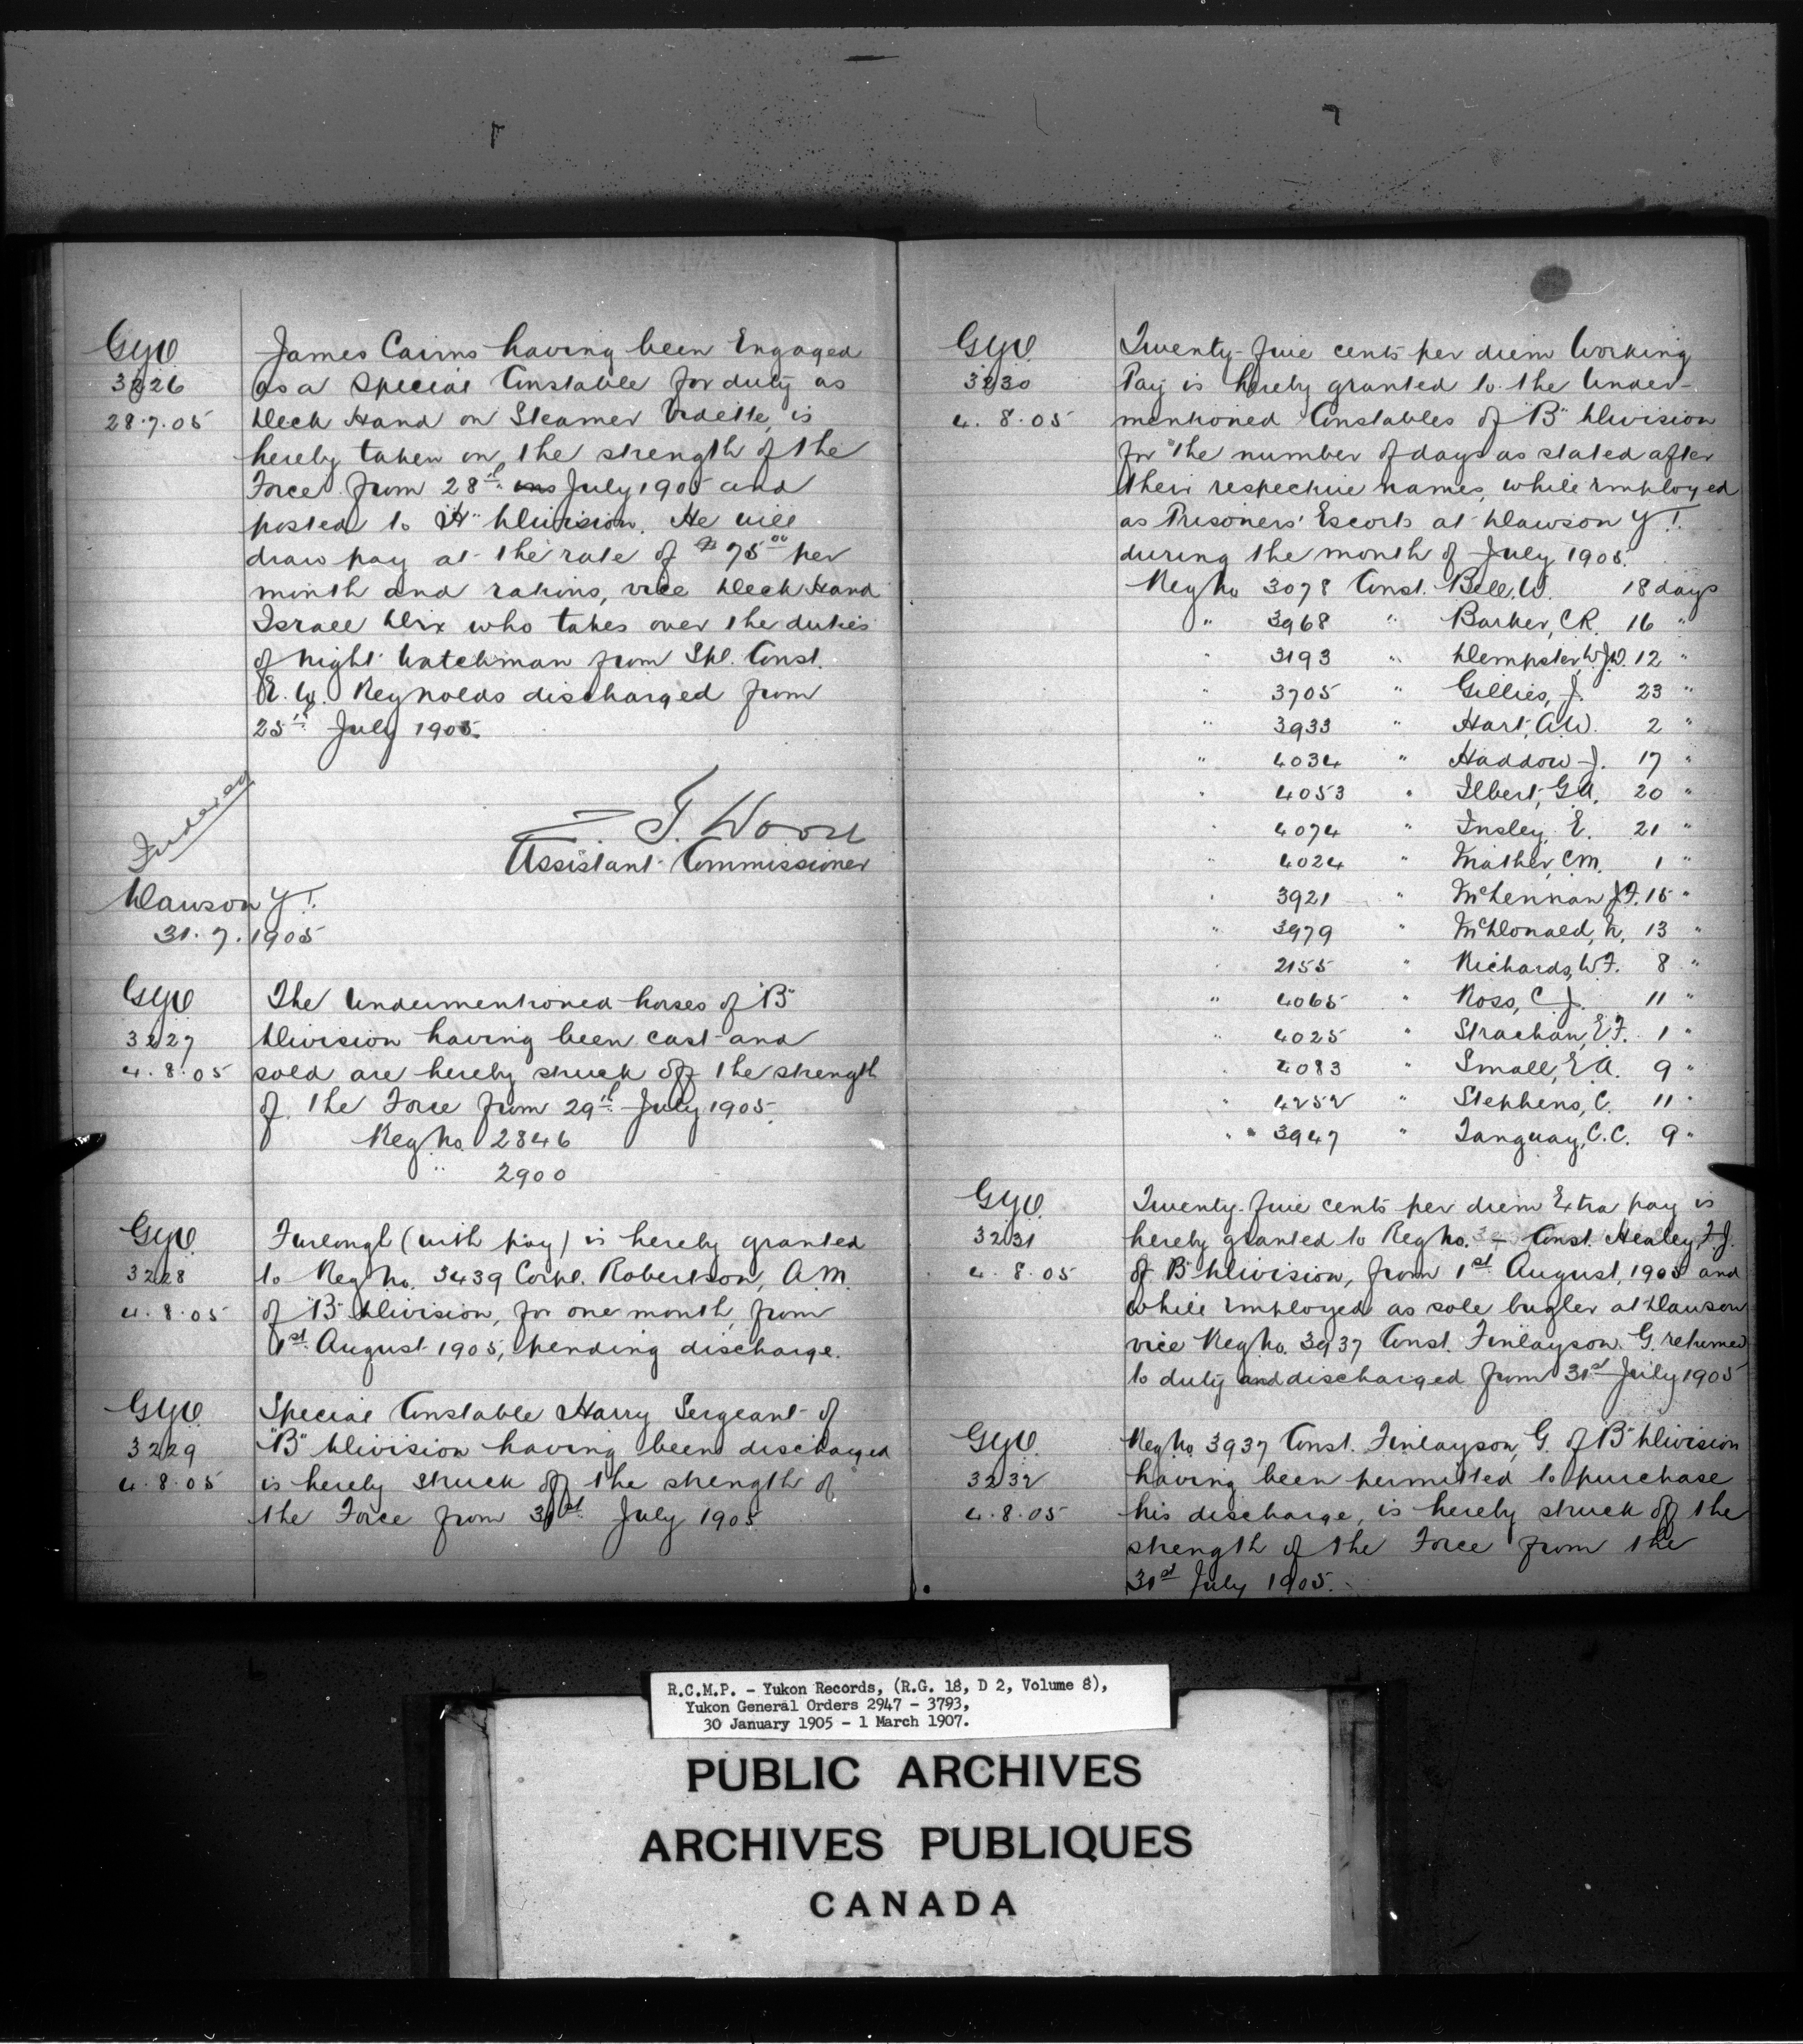 G.Y.O.
3226
28.7.05
James Cairns having been Engaged
as a Special Constable for duty as
Deck Hand on Steamer Vidette, is
hereby taken on the strength of the
Force from 28th July 1905 and
posted to "H" Division. He will
draw pay at the rate of $75.00 per
month and rations, vice Deck Hand
Israel Dix who takes over the duties
of Night Watchman from Spl. Const.
Reynolds discharged from
25th July 1905.
Indexed
Z. T. Wood
Assistant Commissioner
Dawson Y.T.
31.7.1905
G.Y.O.
3227
4.8.05
The Undermentioned horses of "B"
Division having been cast and
sold are hereby struck off the strength
of the Force from 29th July 1905.
Reg No. 2846
" 2900
G.Y.O.
3228
4.8.05
Furlough (with pay) is hereby granted
to Reg. No. 3439 Corpl. Robertson, A.M.
of "B" Division, for one month, from
1st August 1905, pending discharge.
G.Y.O.
3229
4.8.05
Special Constable Harry Sergeant of
"B" Division having been discharged
is hereby struck off the strength of
the Force from 31st July 1905
G.Y.O.
3230
4.8.05
Twenty-five cents per diem Working
Pay is hereby granted to the Under-
mentioned Constables of "B" Division
for the number of days as stated after
their respective names, while employed
as Prisoners' Escorts at Dawson Y.T.
during the month of July 1905.
Reg No 3078 Const. Bell, W. 18 days
" 3968 " Barker, C.R. 16 "
" 3193 " Dempster, W.J.D. 12 "
" 3705 " Gillies, J. 23 "
" 3933 " Hart, A.W. 2 "
" 4034 " Haddow J. 17 "
" 4053 " Ilbert, G.A. 20 "
" 4074 " Insley, E. 21 "
" 4024 " Mather, C.M. 1 "
" 3921 " McLennan J.F. 15 "
" 3979 " McDonald, N. 13 "
" 2155 " Richards, W.F. 8 "
" 4065 " Ross, C.J. 11 "
" 4025 " Strachan, E.F. 1 "
" 4083 " Small, E.A. 9 "
" 4252 " Stephens, C. 11 "
" 3947 " Tanguay, C.C. 9 "
G.Y.O.
3231
4.8.05
Twenty-five cents per diem Extra pay is
hereby granted to Reg No. Const. Healey, F.J.
of "B" Division, from 1st August, 1905 and
while employed as sole bugler at Dawson
vice Reg No. 3937 Const. Finlayson. G. returned
to duty and discharged from 31st July 1905
G.Y.O.
3232
4.8.05
Reg No 3937 Const. Finlayson, G. of "B" Division
having been permitted to purchase
his discharge, is hereby struck off the
strength of the Force from the
31st July 1905.
R.C.M.P. - Yukon Records, (R.G. 18, D 2, Volume 8),
Yukon General Orders 2947 - 3793,
30 January 1905 - 1 March 1907.
PUBLIC ARCHIVES
ARCHIVES PUBLIQUES
CANADA